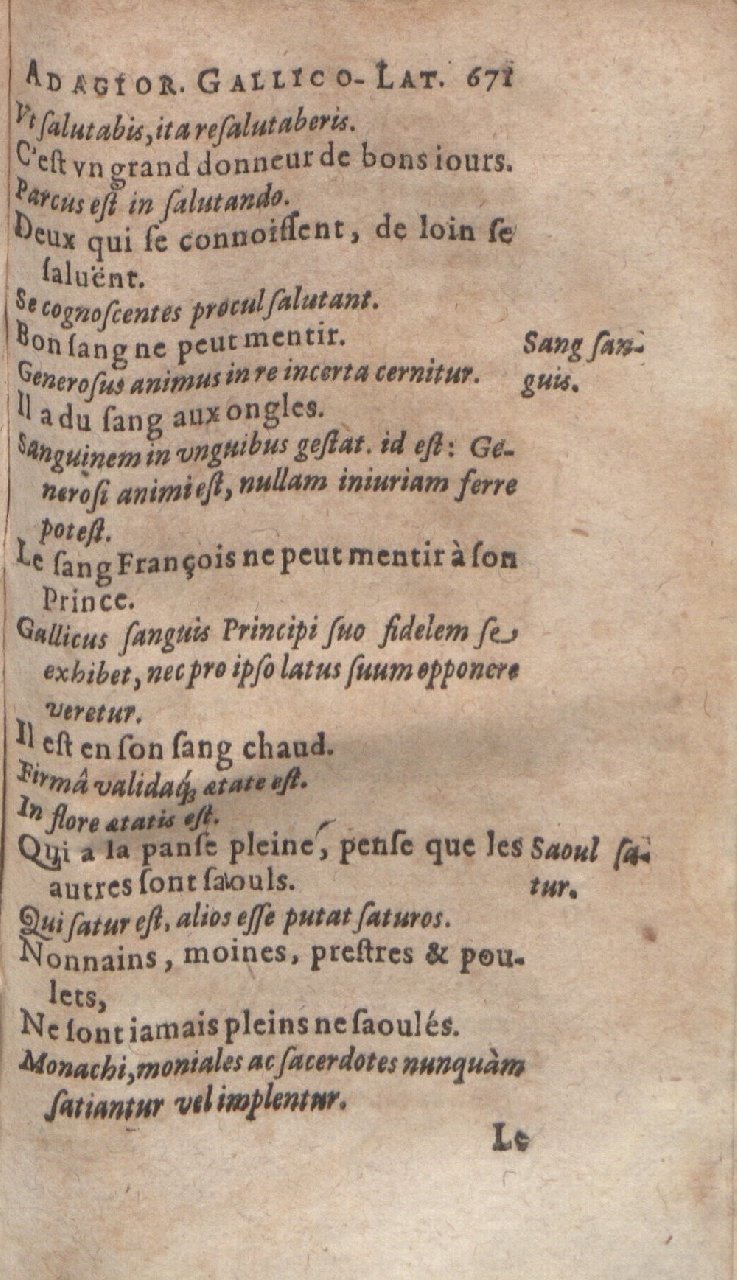 ADAGIOR. GALLICO-LAT. 671
Vt ſalutabis, ita reſalutaberis.
C'eſt vn grand donneur de bons iours.
Parcus eſt in ſalutando.
Deux qui ſe connoiſſent, de loin ſe
ſaluënt.
Se cognoſcentes procul ſalutant.
Bon ſang ne peut mentir.
Sang ſan-
Generoſus animus in re incerta cernitur.
guis.
Il a du ſang aux ongles.
Sanguinem in vnguibus geſtat. id eſt: Ge-
neroſi animi eſt, nullam iniuriam ferre
poteſt.
Le ſang François ne peut mentir à ſon
Prince.
Gallicus ſanguis Principi ſuo fidelem ſe
exhibet, nec pro ipſo latus ſuum opponere
veretur.
Il eſt en ſon ſang chaud.
Firmâ validaq́; ætate eſt.
In flore ætatis eſt.
Qui a la panſe pleine, penſe que les
Saoul ſa-
autres ſont ſaouls.
tur.
Qui ſatur eſt, alios eſſe putat ſaturos.
Nonnains, moines, preſtres & pou-
lets,
Ne ſont iamais pleins ne ſaoulés.
Monachi, moniales ac ſacerdotes nunquàm
ſatiantur vel implentur.
Le